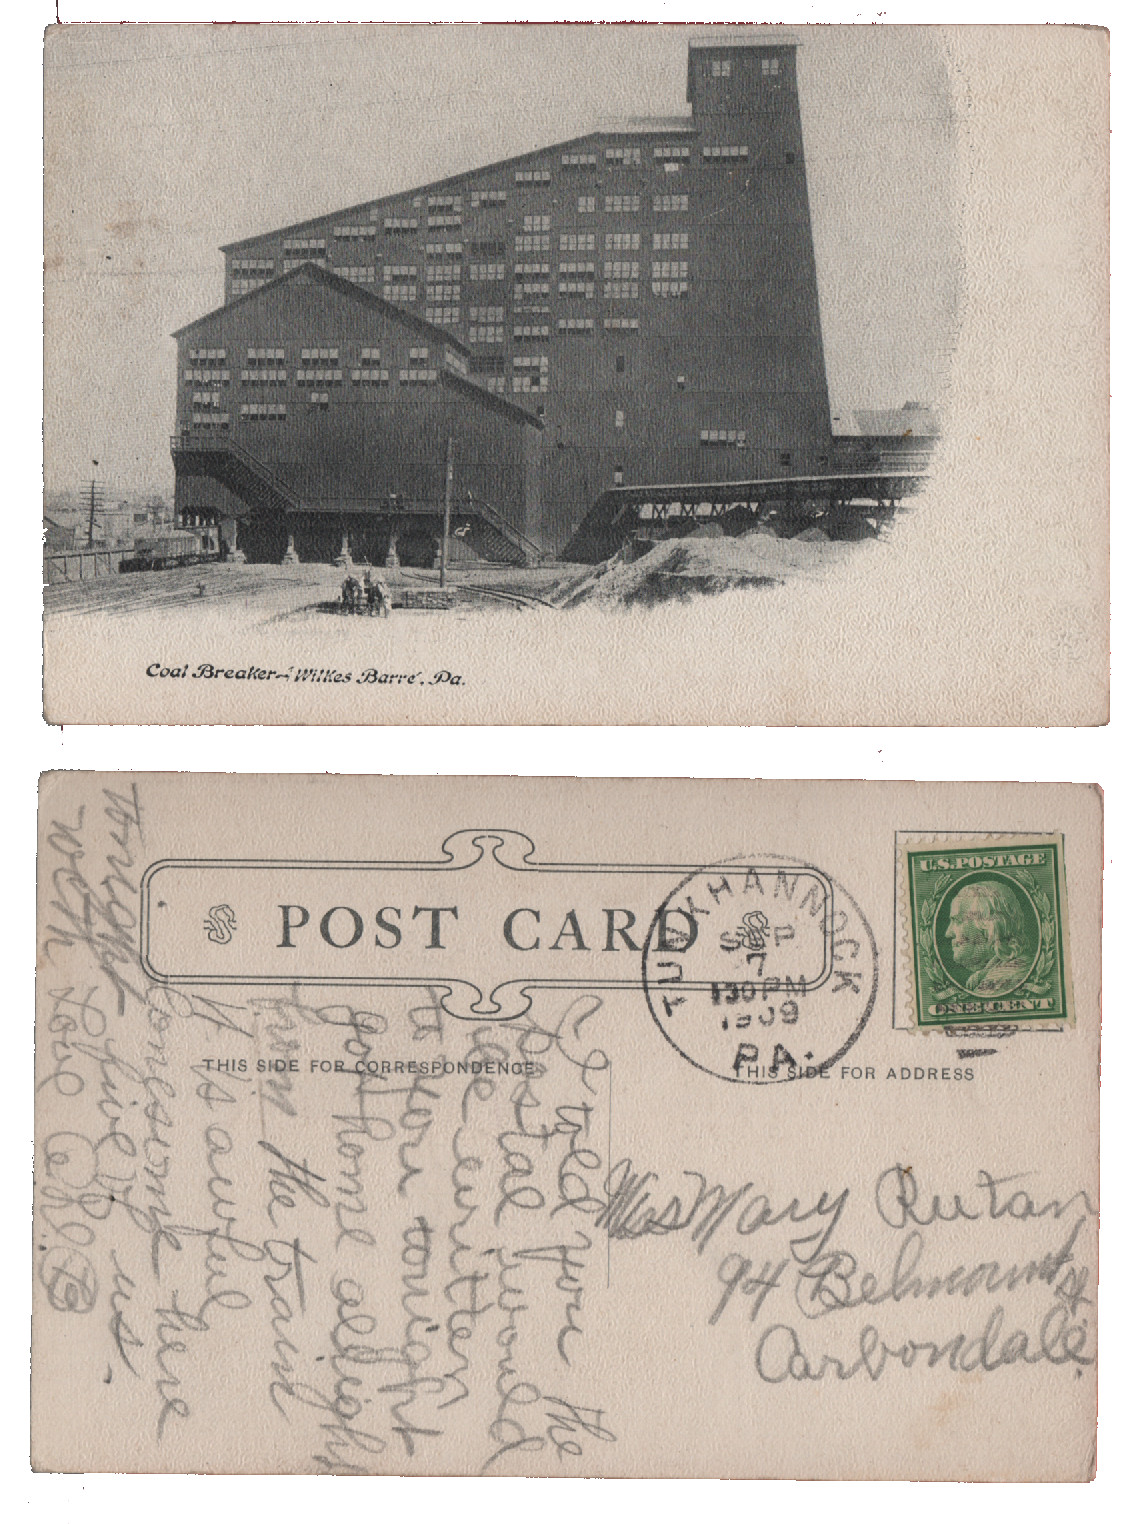 Coal Breaker - Wilkes Barre, Pa.
POST CARD
TUNKHANNOCK
SEP
7
130 PM
1909
PA.
U.S. POSTAGE
ONE CENT
THIS SIDE FOR CORRESPONDENCE
THIS SIDE FOR ADDRESS
I told you the
postal would
be written
to you tonight
got home allright
from the train
It is awful
lonesome here
tonight
with
Love
Miss Mary Rutan
94 Belmount St
Carbondale